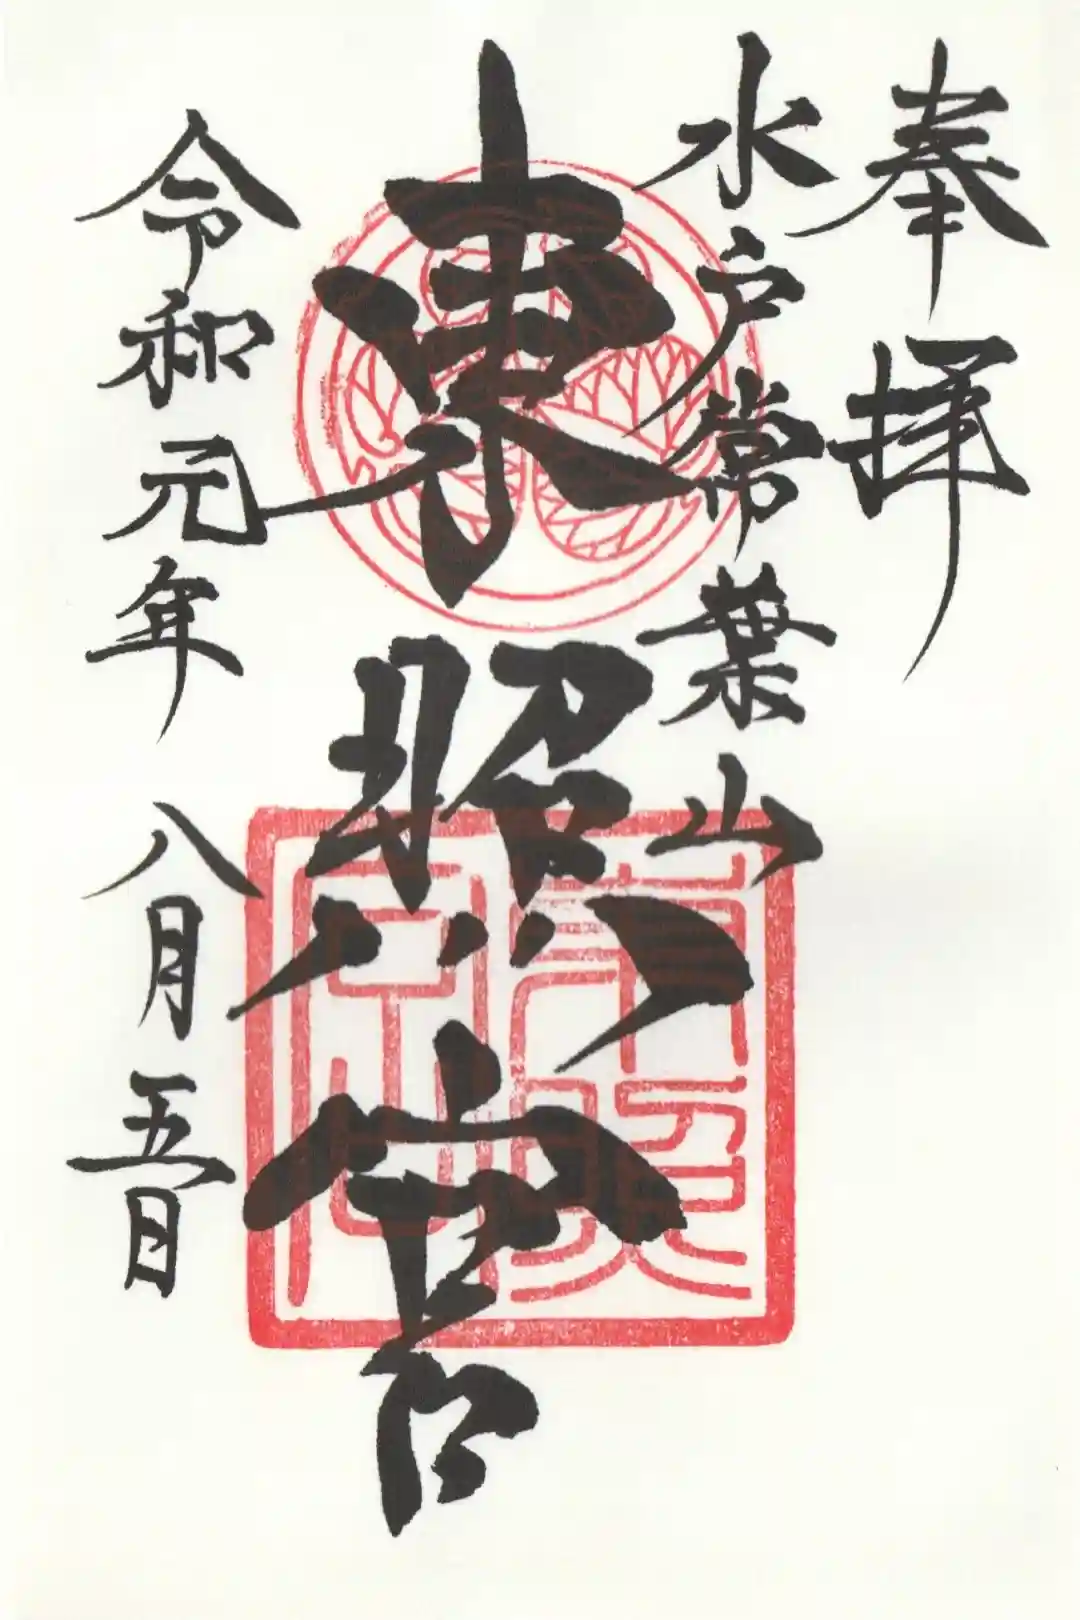 奉拝
水戸常葉山
東照宮
令和元年八月五日